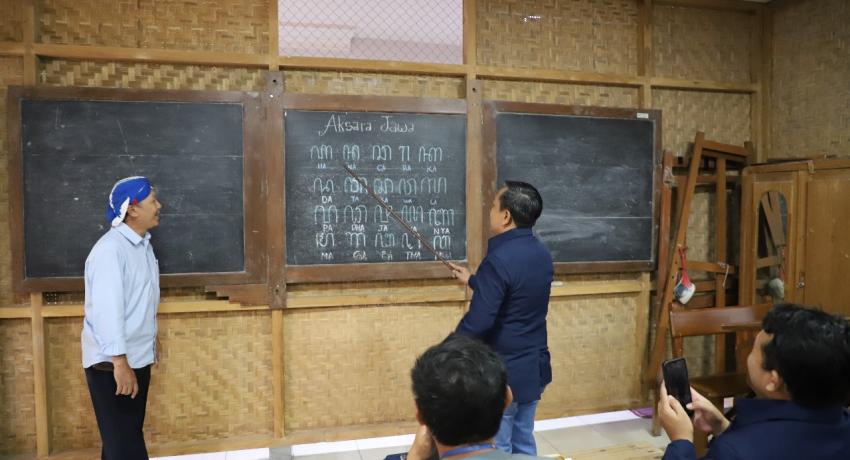 Aksara Jawa
ꦲ ꦤ ꦕ ꦫ ꦏ
HA NA CA RA KA
ꦢ ꦠ ꦱ ꦮ ꦭ
DA TA WA LA
ꦥ ꦝ ꦗ ꦪ ꦚ
PA DHA JA YA NYA
ꦩ ꦒ ꦧ ꦛ ꦔ
MA GA BA THA